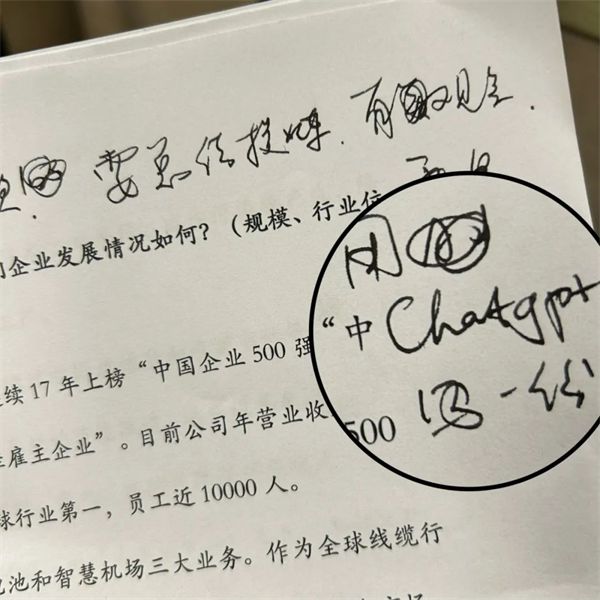 要总结提炼.有观点.
的企业发展情况如何？（规模、行业位
用
Chatgpt
写一份
连续 17 年上榜“中国企业 500 强
“中
雇主企业”。目前公司年营业收
500
球行业第一，员工近 10000 人。
电池和智慧机场三大业务。作为全球线缆行